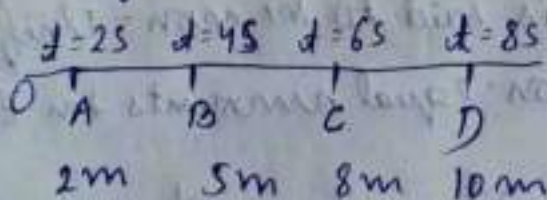 t=2S t=4S t=6S t=8S
O A B C D
2m 5m 8m 10m